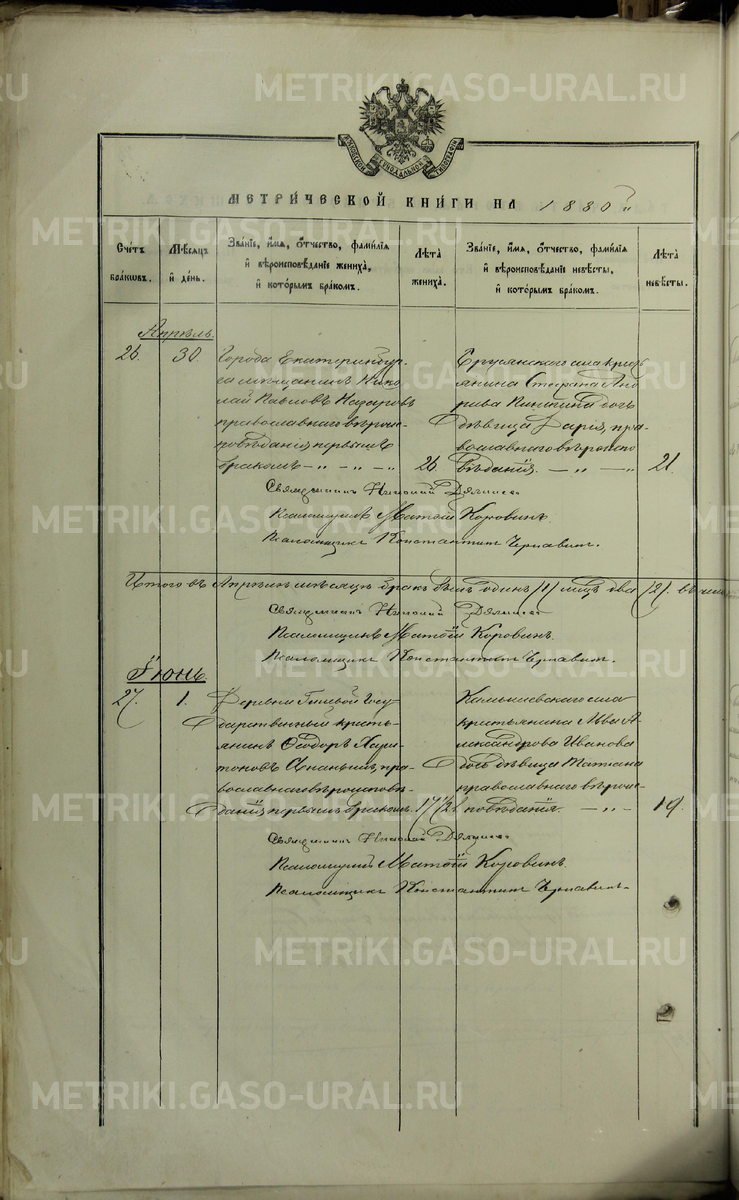 METRIKI.GASO-URAL.RU
МЕТРИЧЕСКОЙ КНИГИ НА 1880 г.
Счетъ браковъ.
Мѣсяцъ и день.
Званіе, имя, отчество, фамилія и вѣроисповѣданіе жениха, и которымъ бракомъ.
Лѣта жениха.
Званіе, имя, отчество, фамилія и вѣроисповѣданіе невѣсты, и которымъ бракомъ.
Лѣта невѣсты.
Апрѣль.
26. 30.
Города Екатеринбур-
га мѣщанинъ Нико-
лай Павловъ Назаровъ
православнаго вѣроис-
повѣданія первымъ
бракомъ
26.
Брусянскаго села кресть
янина Стефана
дочь
дѣвица Дарія, пра-
вославнаго вѣроиспо
вѣданія.
21.
Священникъ Николай
Псаломщикъ Матѳій Коровинъ.
Псаломщикъ Константинъ Чернавинъ.
Итого въ Апрѣлѣ мѣсяцѣ бракъ былъ одинъ /1/ лицъ два /2/.
Священникъ Николай
Псаломщикъ Матѳій Коровинъ.
Псаломщикъ Константинъ Чернавинъ.
Іюнь.
27. 1.
Деревни Госу-
дарственный кресть-
янинъ Ѳеодоръ Хари-
тоновъ Ананьинъ, пра-
вославнаго вѣроисповѣ-
данія, первымъ бракомъ.
Камышевскаго села
крестьянина Льва А-
лександрова Иванова
дочь дѣвица Татіана
православнаго вѣроис-
повѣданія.
19.
Священникъ Николай
Псаломщикъ Матѳій Коровинъ.
Псаломщикъ Константинъ Чернавинъ.